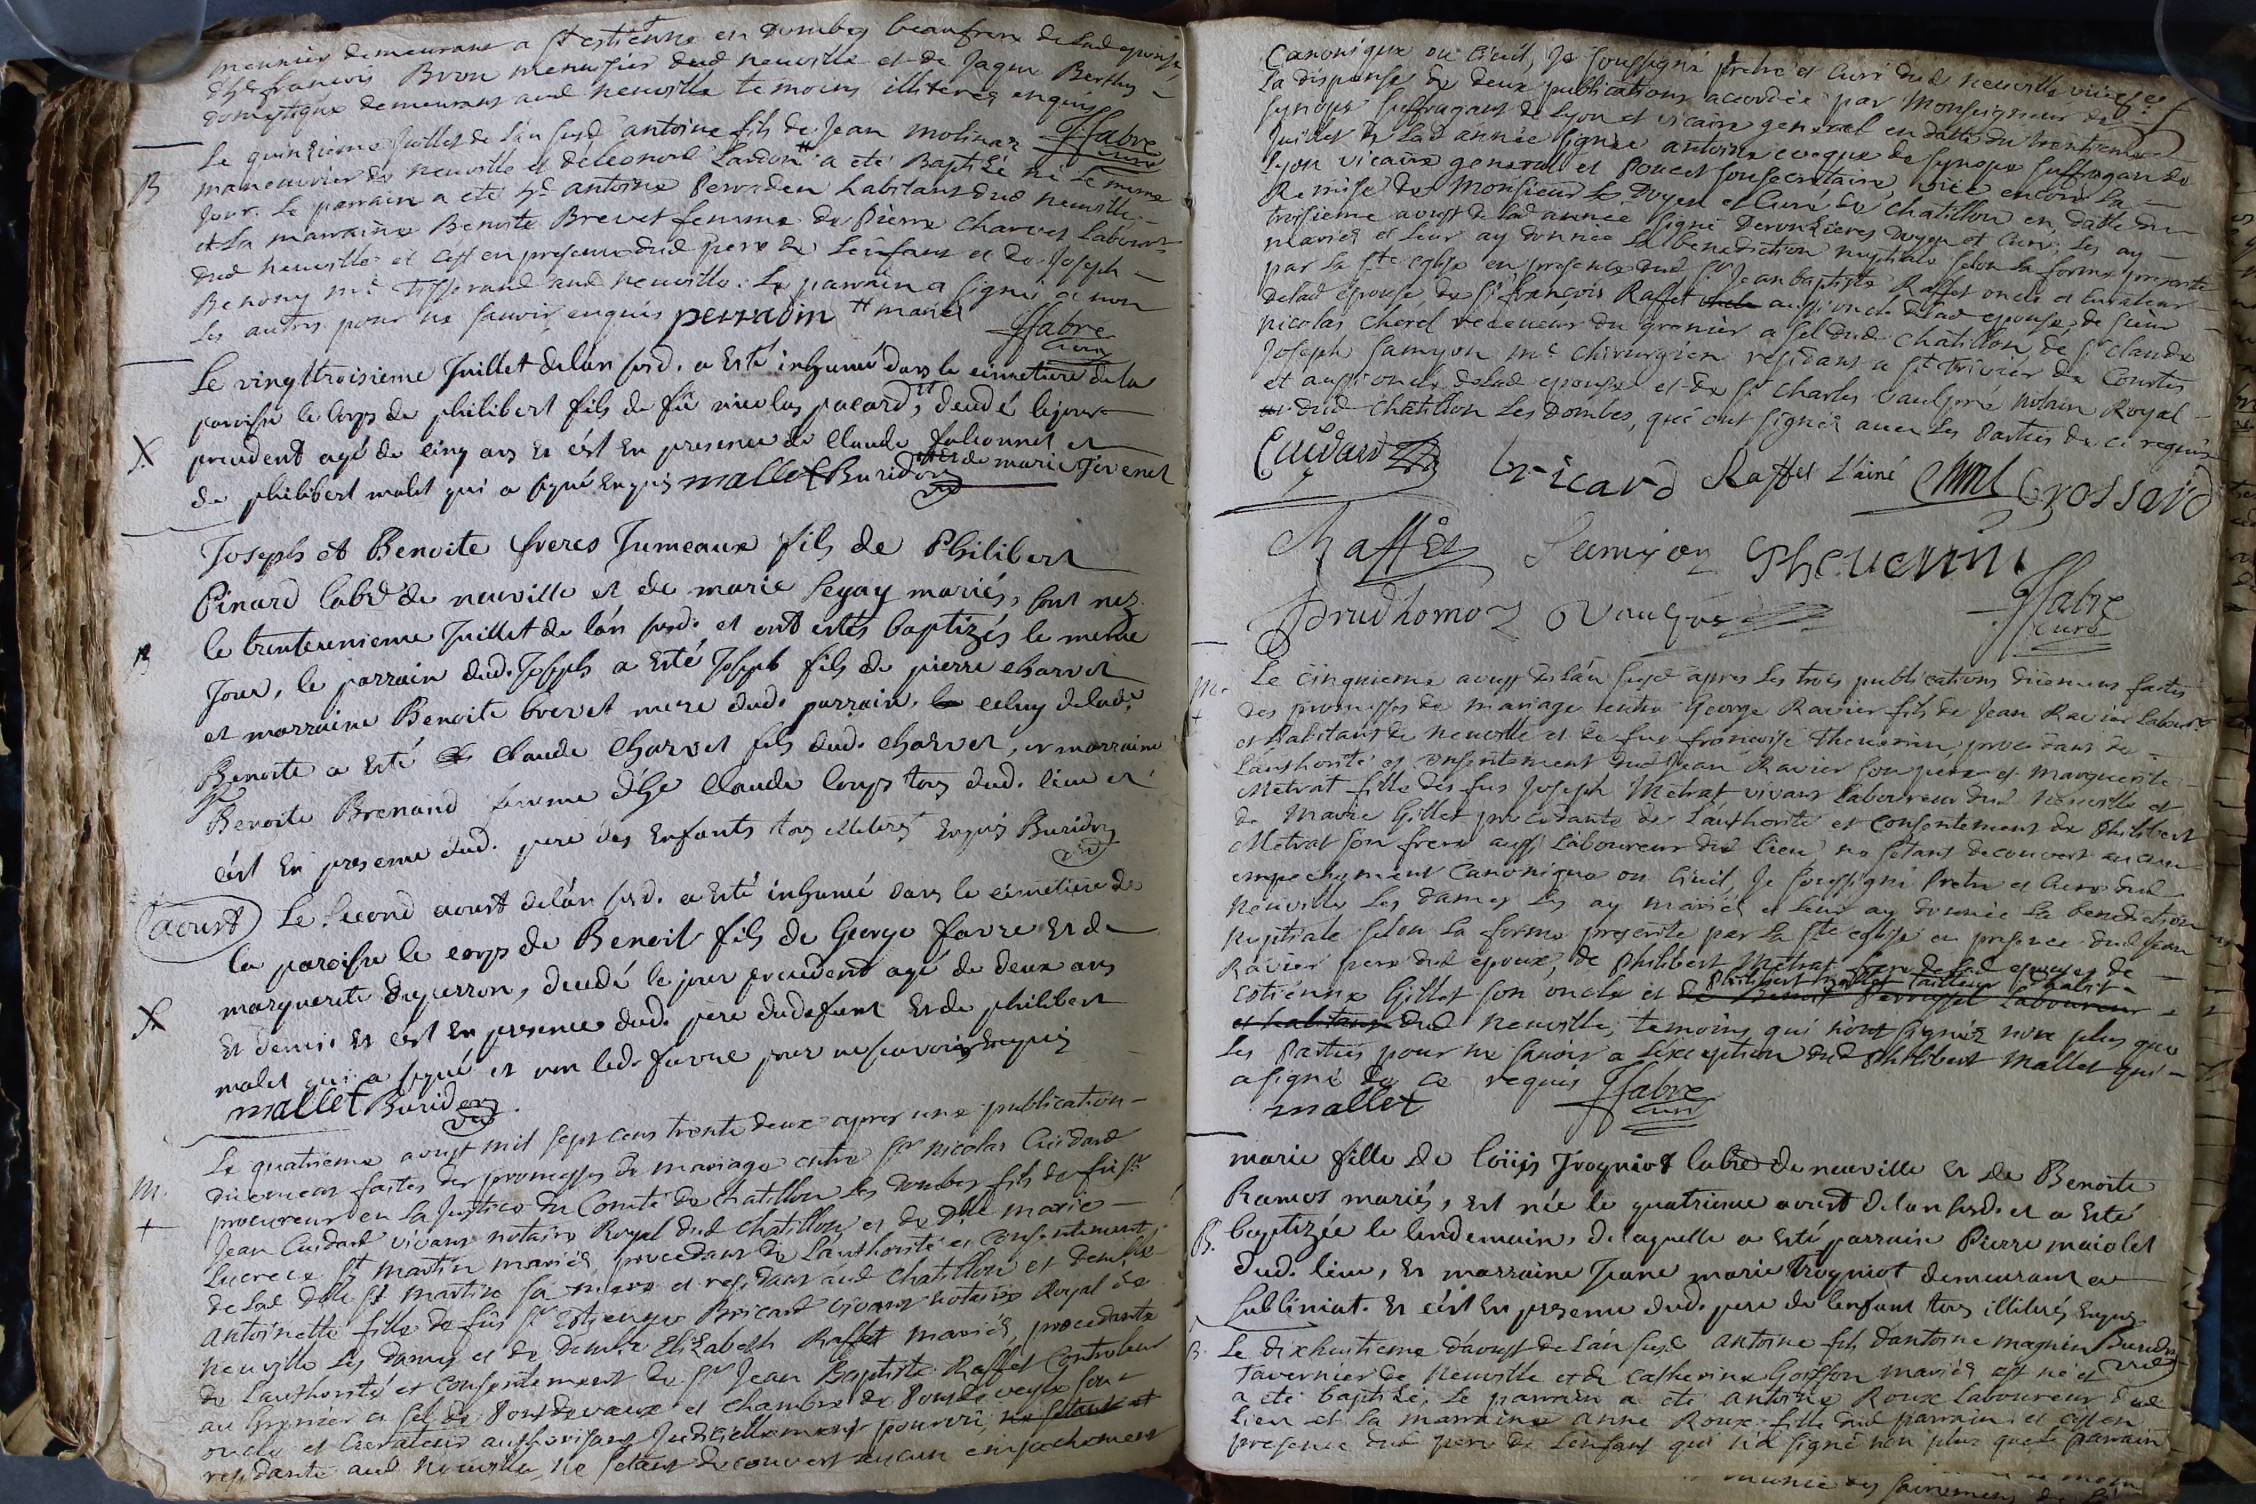 meunier demeurant a St estienne en Dombes beaufrere de lad epouse,
d'hte francois Bron menusier dud neuville et de Jaque Berthy
domestique demeurant aud Neuville temoins illiteres enquis
ffabre
curé
B
Le quinzieme Juillet de l'an susd antoine fils de Jean molinaz
maneuvrier de neuville et deleonord Landon # a eté Baptisé né le meme
jour. Le parrain a eté Sr antoine Perraden habitant dud neuville
et La marraine Benoite Brevet femme de Pierre Charvet Labour
dud neuville et c'est en presence dud pere de L'enfant et de Joseph
Benony me Tisserand aud neuville. Le parrain a signé et non
Les autres pour ne sauoir enquis perradin # mariés
ffabre
curé
Le vingttroisieme Juillet delan susd. a esté inhumé dans le cimetiere de la
paroisse le corps de philibert fils de fû nicolas pacard, # decedé le jour
X
precedent agé de cinq ans et c'est En presence de Claude falconnet et
# et de marie Jivenet
de philibert malet qui a signé Enquis mallet Buridon
vic
Joseph et Benoite freres Jumeaux fils de Philibert
Pinard labr de neuville et de marie Legay mariés, sont nez
B
le trenteunieme Juillet de lan susd. et ont estés baptizés le meme
Jour, le parrain dud. Joseph a Esté Joseph fils de pierre charvet
et marraine Benoite brevet mere dud. parrain. celuy delad.
Benoite a Esté Claude Charvet fils dud. charvet, et marraine
Benoite Brenand femme dhe Claude Loup tous dud. lieu et
c'est En presence dud. pere des Enfants tous illiteres Enquis Buridon
vic
aoust
Le second aoust delan susd. a esté inhumé dans le cimetiere de
la paroisse le corps de Benoit fils de George favre Et de
marguerite duperron, decedé le jour precedent agé de deux ans
X
et demi et c'est En presence dud. pere dudefunt Et de philibert
malet qui a signé et non led. favre pour ne scavoir Enquis
mallet Buridon
vic
M.
+
Le quatrieme aoust mil sept cens trente deux apres une publication
düement faites des promesses de mariage entre Sr nicolas Cuidard
procureur en la Justice du Comté de chatillon les dombes fils de fû Sr
Jean Cuidard vivant notaire Royal dud Chatillon, et de Dlle marie
Lucrece St martin mariés, procedant de L'authorité et consentement
de lad dlle St martin sa mere et residant aud Chatillon et demlle
antoinette fille de fûs Sr Estienne Bricard vivant notaire Royal de
Neuville les dames et de demlle Elizabeth Raffet mariés, procedante
de l'authorité et consentement de Sr Jean Baptiste Raffet Controleur
au grenier a sel de Pontdevaux et chambre de Pontdeveyle son
oncle et curateur authorisant Judiciellement pourvû, ne setant et
residante aud Neuville, ne setant decouvert aucun empechement
Canonique ou Ciuil, Je soussigné pretre et Curé dud neuville
La dispense de deux publications accordée par Monseigneur de
Synope suffragant de Lyon et vicaire general en datte du trentieme
Juillet de lad année signée antoine eveque de Synope suffragan de
Lyon vicaire general et Poncet sousecretaire, viëe encore la
Remise de Monsieur le Doyen et Curé de Chatillon en datte du
troisieme aoust de lad année signé Deronzieres doyen et Curé, les ay
mariés et leur ay donnée la benediction nuptiale selon la forme prescrite
par la Ste eglise en presence dud Sr Jean baptiste Raffet oncle et curateur
delad epouse, de Sr françois Raffet oncle aussi oncle delad epouse, de sieur
Nicolas Cherel receueur du grenier a sel dud Chatillon, de Sr Claude
Joseph Samyon me chirurgien residant a St trivier de Courtes
et aussi oncle delad epouse et de Sr Charles Vaulpré notaire Royal
dud Chatillon Les Dombes, qui ont signés auec les Parties de ce requis
Cuidard Bricard Raffet L'ainé Cherel Crossard
Raffet Samyon Theuenin
Prudhomo Vaulpré ffabre
curé
M.
+
Le cinquieme aoust de lan susd apres les trois publications düement faites
des promesses de mariage entre George Ravier fils de Jean Ravier Labourr
et habitant de neuville et de fue françoise Theuenin, procedant de
L'authorité et consentement dud Jean Ravier son pere et marguerite
Metrat fille des fus Joseph Metrat vivant laboureur dud Neuville et
de Marie Gillet procedante de L'authorité et consentement de Philibert
Metrat son frere aussi Laboureur dud lieu ne setant decouvert aucun
empechement Canonique ou Ciuil, Je soussigné Pretre et Curé dud
Neuville les dames les ay mariés et leur ay donnée la benediction
nuptiale selon la forme prescrite par la Ste eglise en presence dud Jean
Ravier pere dud epoux, de Philibert Metrat frere de lad epouse, de
Philibert mallet tailleur d'habit
Estienne Gillet son oncle et de Benoit Perrusset Laboureur
et habitant dud neuville, temoins qui n'ont signés non plus que
les Parties pour ne sauoir a l'exception dud Philibert Mallet qui
a signé de ce requis ffabre
mallet curé
marie fille de loüis Trogniot labr de neuville et de Benoite
Ramos mariés, est née le quatrieme aoust delan susd. et a esté
B.
baptizée le lendemain, de laquelle a esté parrain Pierre maiolet
dud. lieu, et marraine Jeane marie trogniot demeurant a
Subliniat. Et c'est En presence dud. pere de lenfant tous illiterés Enquis
Buridon
vic
B.
Le dixhuitieme d'aoust de lan susd antoine fils d'antoine magnin
Tavernier de Neuville et de Catherine Goisson mariés est né et
a eté baptisé, Le parrain a eté antoine Roux laboureur dud
lieu et la marraine anne Roux fille dud parrain, et c'est en
presence dud pere de L'enfant qui n'a signé non plus que le parrain
munie des sacremens de